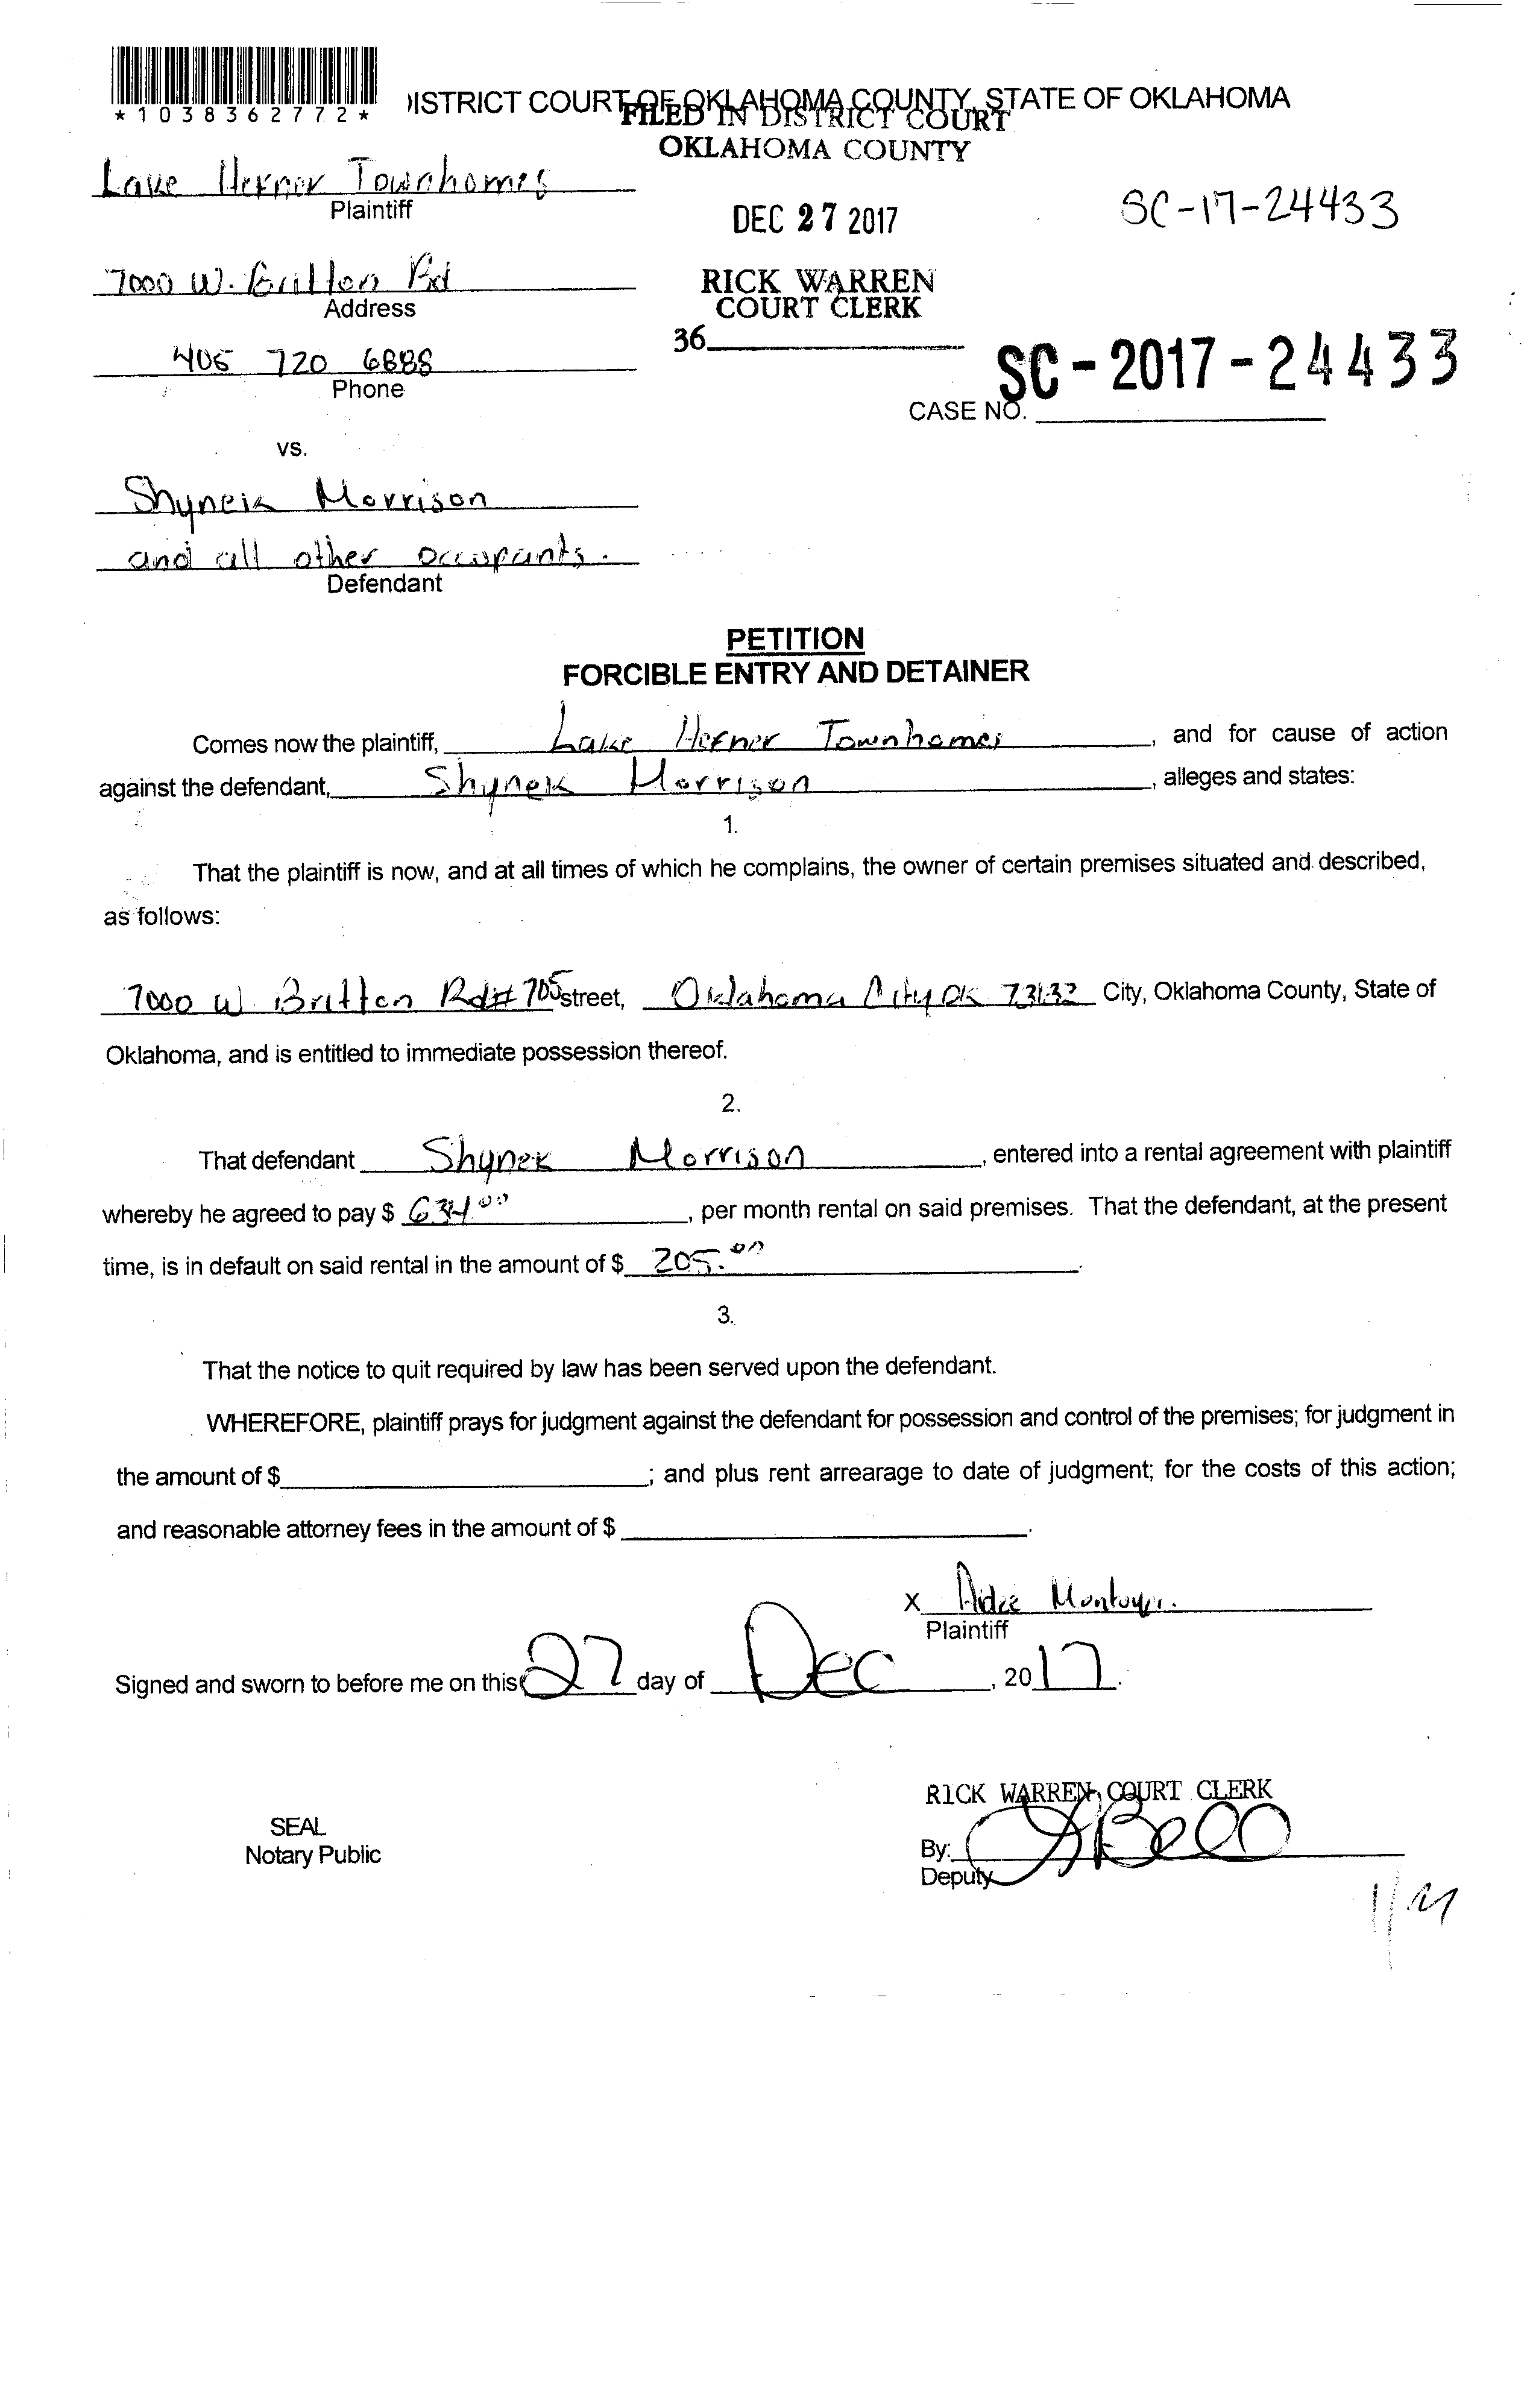 *1038362772*
ISTRICT COURT OF OKLAHOMA COUNTY, STATE OF OKLAHOMA
FILED IN DISTRICT COURT
OKLAHOMA COUNTY
Lake Hefner Townhomes
Plaintiff
DEC 27 2017
SC-17-24433
7000 W. Britton Rd
Address
RICK WARREN
COURT CLERK
36
405 720 6888
Phone
SC-2017-24433
CASE NO.
vs.
Morrison
and all other occupants.
Defendant
PETITION
FORCIBLE ENTRY AND DETAINER
Comes now the plaintiff, Lake Hefner Townhomes, and for cause of action
against the defendant, Morrison, alleges and states:
1.
That the plaintiff is now, and at all times of which he complains, the owner of certain premises situated and described,
as follows:
7000 W Britton Rd # 705 street, Oklahoma City OK 73132 City, Oklahoma County, State of
Oklahoma, and is entitled to immediate possession thereof.
2.
That defendant Shynek Morrison, entered into a rental agreement with plaintiff
whereby he agreed to pay $ 634.00, per month rental on said premises. That the defendant, at the present
time, is in default on said rental in the amount of $ 205.00.
3.
That the notice to quit required by law has been served upon the defendant.
WHEREFORE, plaintiff prays for judgment against the defendant for possession and control of the premises; for judgment in
the amount of $ ; and plus rent arrearage to date of judgment; for the costs of this action;
and reasonable attorney fees in the amount of $ .
X Aidee Montoya
Plaintiff
Signed and sworn to before me on this 27 day of Dec, 2017.
RICK WARREN, COURT CLERK
SEAL
Notary Public
By:
Deputy